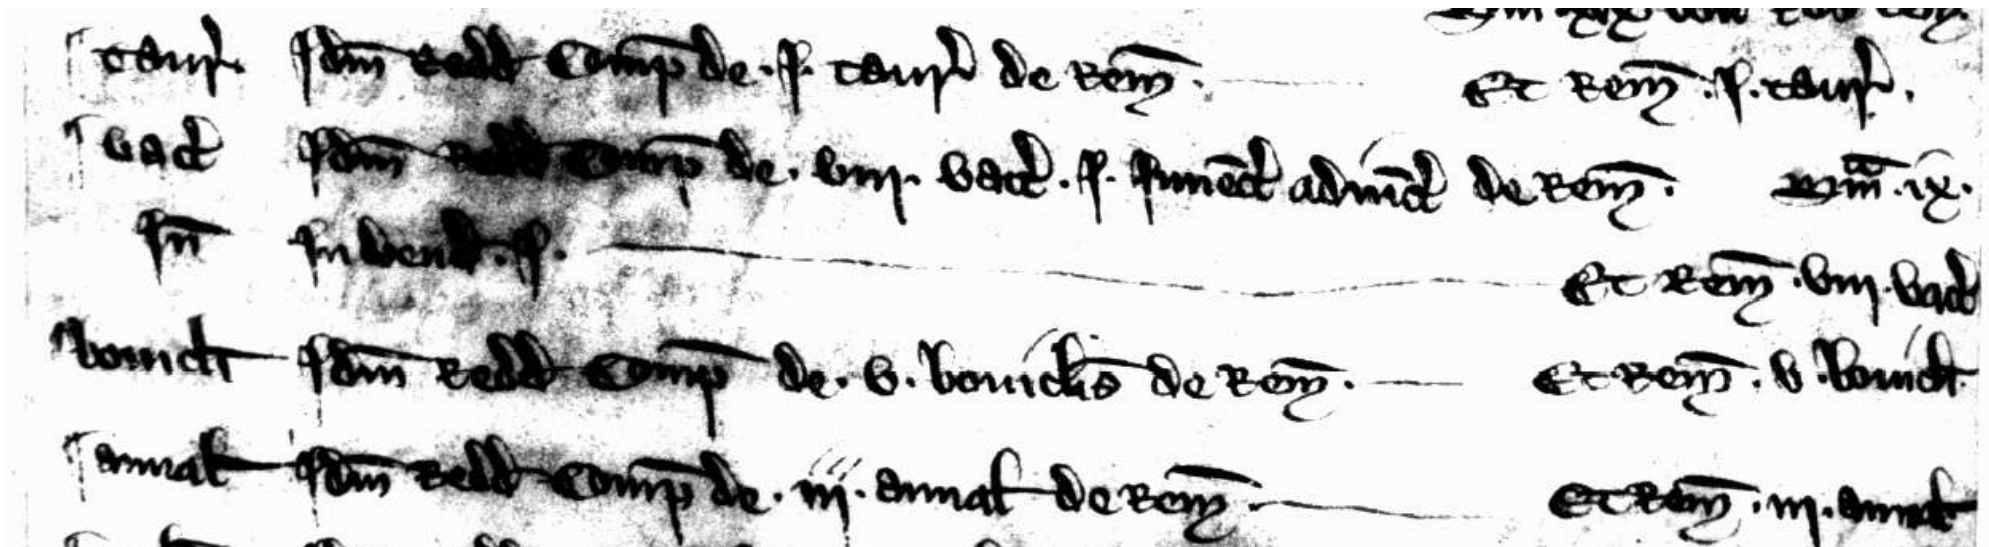 taur' Idm Redd Comp de .j. taur' de Rem̄. Et Rem̄ .j. taur'.
vacc' Idm Redd Comp de . viij. vacc' .j. Juuēcl' adiūct' de Rem̄. Sm̄ᵃ .ix.
In̄ In vend .j. Et Rem̄ .viij. vacc'
bouicl' Idm Redd Comp de . v . bouiclis de Rem̄. Et Rem̄ . v . bouicl'
annal' Idm Redd Comp de . iij . annal' de Rem̄. Et Rem̄ . iij . annal'